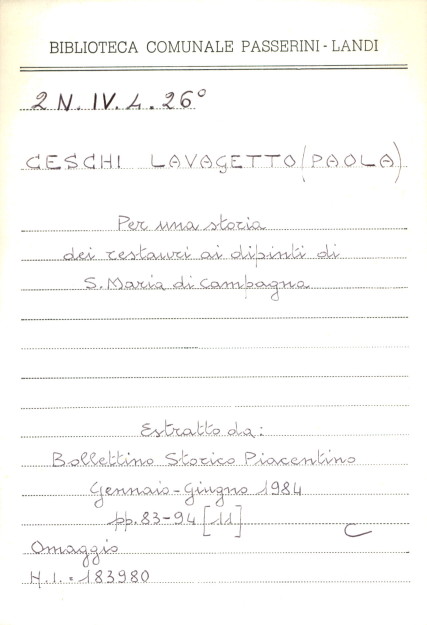 BIBLIOTECA COMUNALE PASSERINI-LANDI
2 N. IV. 4. 26°
CESCHI LAVAGETTO (PAOLA)
Per una storia
dei restauri ai dipinti di
S. Maria di Campagna
Estratto da:
Bollettino Storico Piacentino
Gennaio-Giugno 1984
pp. 83-94 [11]
C
Omaggio
H.I. 183980